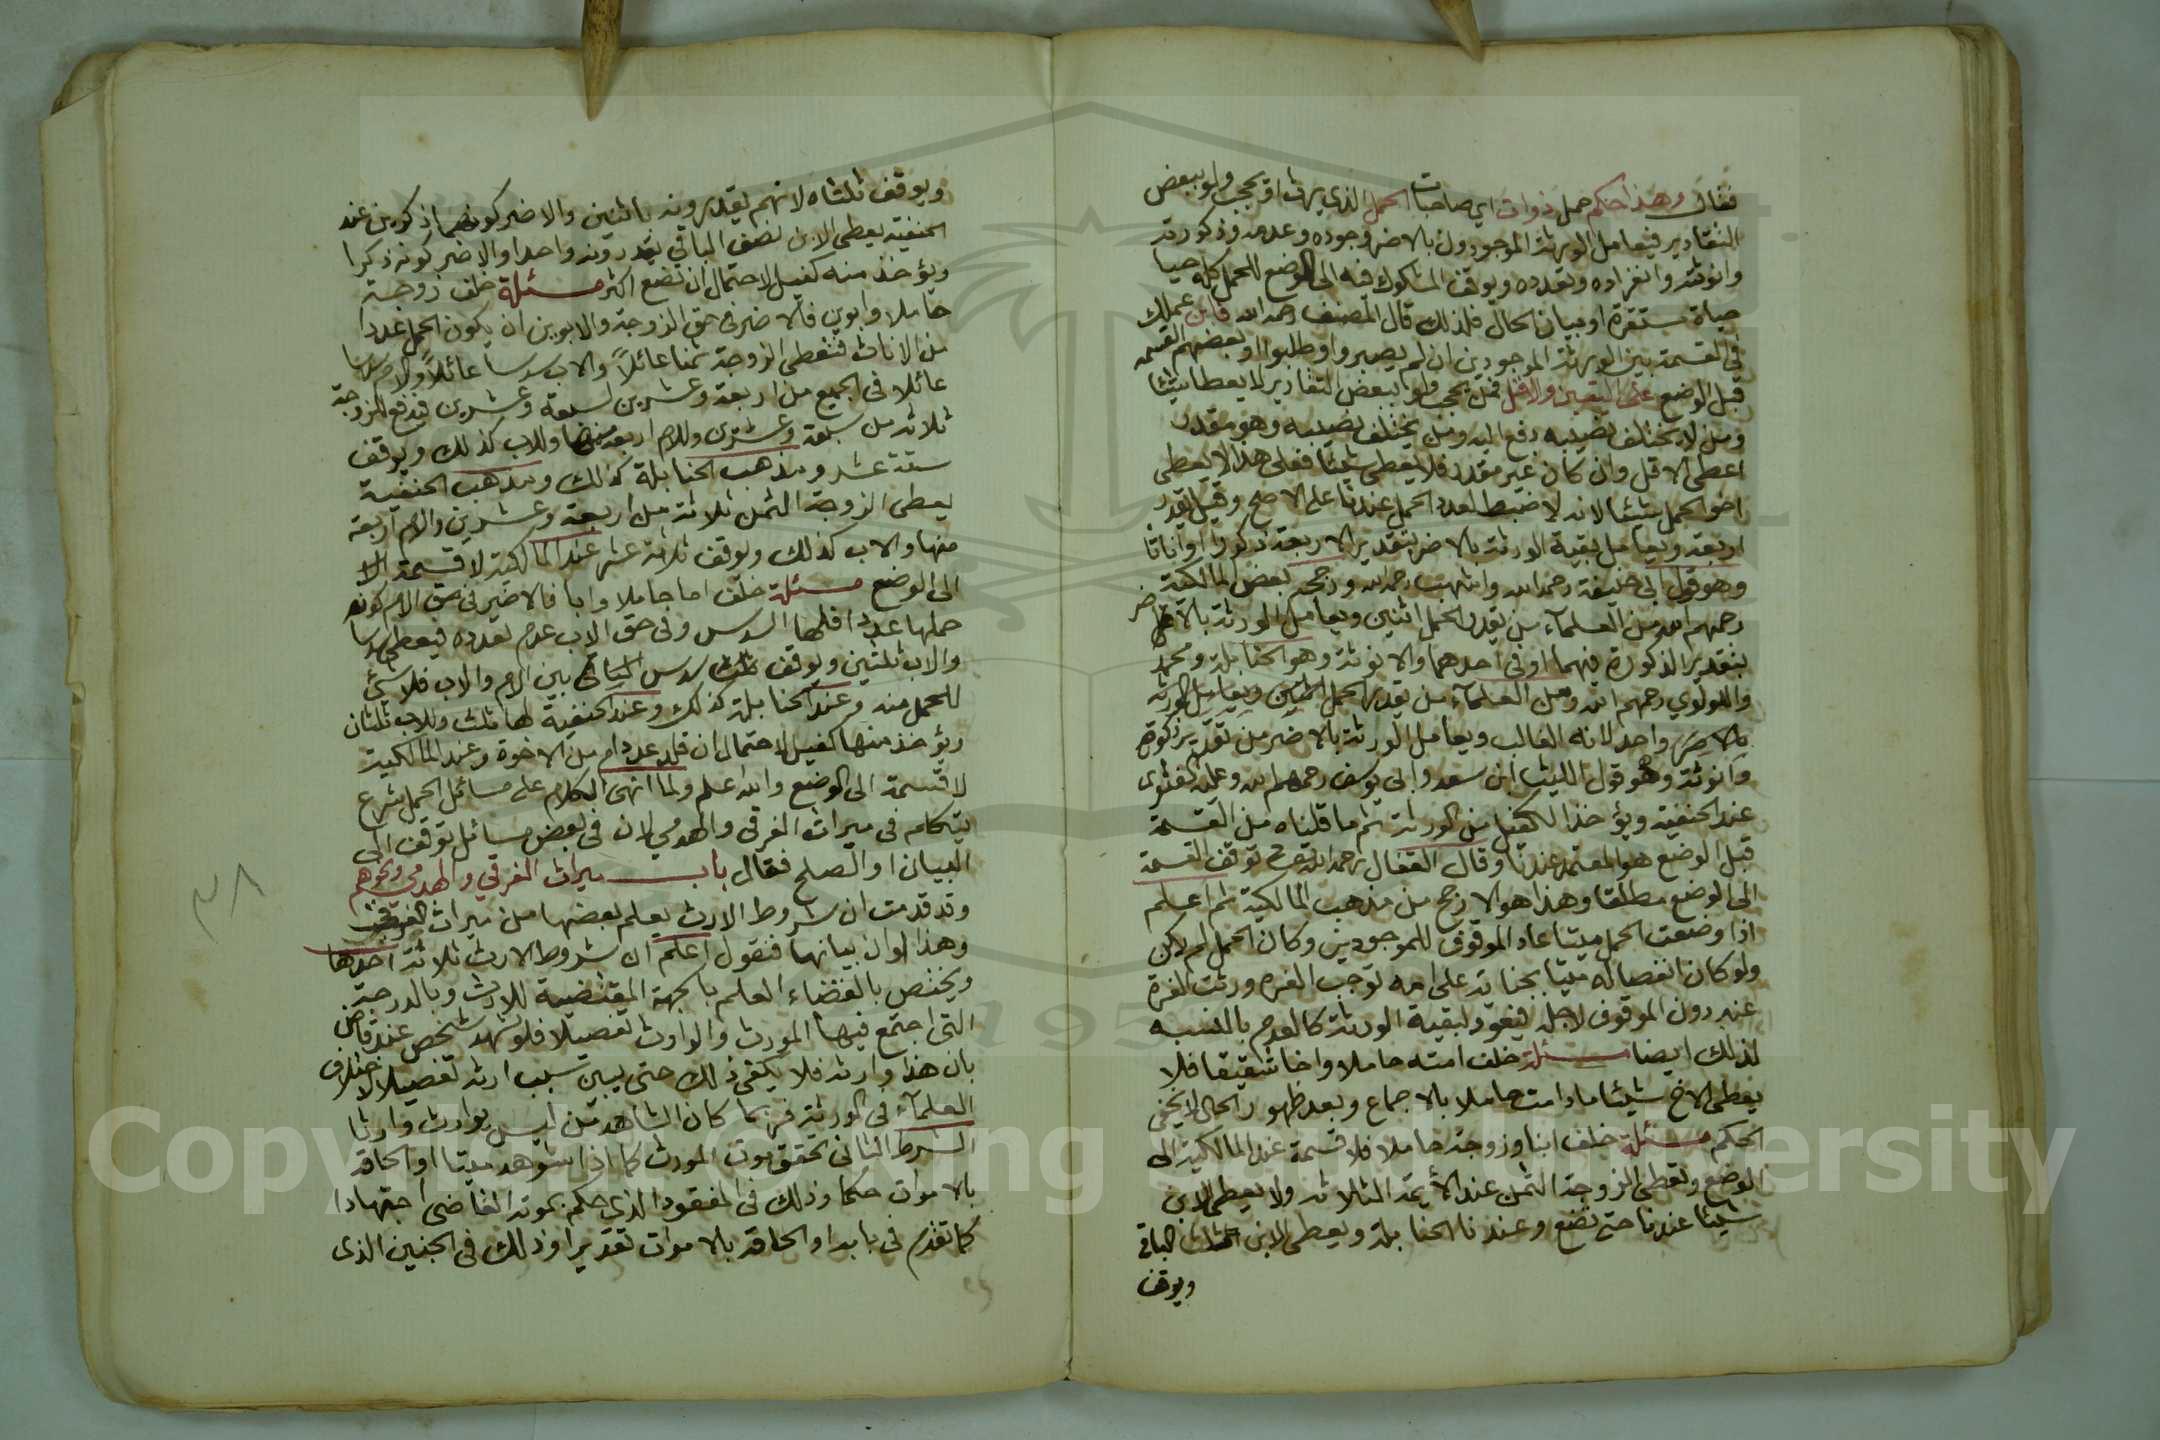 فقال وهذا حكم حمل ذوات اي صاحبات الحمل الذي يرث او يحجب ولو ببعض
التقادير فيعامل الورثة الموجودون بالاضر وجوده وعدمه وذكورته
وانوثته وانفراده وتعدده ويوقف المشكوك فيه الى الوضع للحمل كله حيا
حياة مستقرة او بيان الحال فلذلك قال المصنف رحمه الله فابن عملك
في القسمة بين الورثة الموجودين ان لم يصبروا وطلبوا او بعضهم القسمة
قبل الوضع على اليقين والاقل فمن يحجب ولو ببعض التقادير لا يعطا شيئا
ومن لا يختلف نصيبه دفع اليه ومن يختلف نصيبه وهو مقدر
اعطي الاقل وان كان غير مقدر فلا يعطى شيئا فعلى هذا لا يعطى
اخو الحمل شيئا لانه لا ضبط لعدد الحمل عندنا على الاصح وقيل يقدر
اربعة ويعامل بقية الورثة بالاضر بتقدير الاربعة ذكورا او اناثا
وهو قول ابي حنيفة رحمه الله واشهب رحمه الله ورجحه بعض المالكية
رحمهم الله ومن العلماء من يقدر الحمل اثنين ويعامل الورثة بالاضر
بتقدير الذكورة فيهما او في احدهما والانوثة وهو الحنابلة ومحمد
واللولوي رحمهم الله ومن العلماء من يقدر الحمل ويعامل الورثة
بالاضر واحد لانه الغالب ويعامل الورثة بالاضر من تقدير ذكورة
وانوثة وهو قول الليث ابن سعد وابي يوسف رحمهم الله وعليه الفتوى
عند الحنفية ويؤخذ الكفيل من الورثة ثم ما قلناه من القسمة
قبل الوضع هو المعتمد عندنا وقال القفال رحمه الله توقف القسمة
الى الوضع مطلقا وهذا هو الارجح من مذهب المالكية ثم اعلم
اذا وضعت الحمل ميتا عاد الموقوف للموجودين وكان الحمل لم يكن
ولو كان انفصاله ميتا بجناية على امه توجب الغرة ورثت الغرة
عنه دون الموقوف لاجله فيعود لبقية الورثة كالعدم بالنسبة
لذلك ايضا مسئلة خلف امته حاملا واخا شقيقا فلا
يعطى الاخ شيئا مادامت حاملا بالاجماع وبعد ظهور الحال لا يخفى
الحكم مسئلة خلف ابنا وزوجة حاملا فلا قسمة عند المالكية الى
الوضع وتعطى الزوجة الثمن عند الأيمة الثلاثة ولا يعطى الابن
شيئا عندنا حتى تضع وعند الحنابلة ويعطى الابن ثلث الباقي
ويوقف
ويوقف ثلثاه لانهم يقدرونه باثنين والاضر كونهما ذكورين عند
الحنفية يعطى الابن نصف الباقي يقدرونه واحدا والاضر كونه ذكرا
ويؤخذ منه كفيل لاحتمال ان تضع اكثر مسئلة خلف زوجة
حاملا وابوين فالاضر في حق الزوجة والابوين ان يكون الحمل عددا
من الاناث فتعطى الزوجة ثمنا عائلا والاب سدسا عائلا والام سدسا
عائلا في الجميع من اربعة وعشرين لسبعة وعشرين فيدفع للزوجة
ثلاثة من سبعة وعشرين وللام اربعة منها وللاب كذلك ويوقف
ستة عشر ومذهب الحنابلة كذلك ومذهب الحنفية
يعطى الزوجة الثمن ثلاثة من اربعة وعشرين والام اربعة
منها والاب كذلك ويوقف ثلاثة عشر عند المالكية لا قسمة الا
الى الوضع مسئلة خلف اما حاملا وابا فالاضر في حق الام كون
حملها عددا فلها السدس وفي حق الاب عدم تعدده فيعطى سدسا
والاب ثلثين ويوقف سدس الباقي بين الام والاب فلا شئ
للحمل منه وعند الحنابلة كذلك وعند الحنفية لها ثلث وللاب ثلثان
ويؤخذ منها كفيل لاحتمال ان تلد عددا من الاخوة وعند المالكية
لا قسمة الى الوضع والله اعلم ولما انهى الكلام على مسائل الحمل شرع
يتكلم في ميراث الغرقى والهدمى لان في بعض مسائل توقف الى
البيان او الصلح فقال باب ميراث الغرقى والهدمى ونحوهم
وقد قدمت ان شروط الارث يعلم بعضها من ميراث الغرقى
وهذا اوان بيانها فنقول اعلم ان شروط الارث ثلاثة احدها
ويختص بالقضاء العلم بالجهة المقتضية للارث وبالدرجة
التي اجتمع فيها المورث والوارث تفصيلا فلو شهد شخص عند قاض
بان هذا وارثه فلا يكفي ذلك حتى يبين سبب ارثه تفصيلا لاختلاف
العلماء في الورثة فربما كان الشاهد ليس بوارث وارثا
الشرط الثاني تحقق موت المورث كما اذا شوهد ميتا او الحاقه
بالاموات حكما وذلك في المفقود الذي حكم بموته القاضي اجتهادا
كما تقدم في بابه او الحاقه بالاموات تقديرا وذلك في الجنين الذي
٣٨
Copyright © King Saud University
195